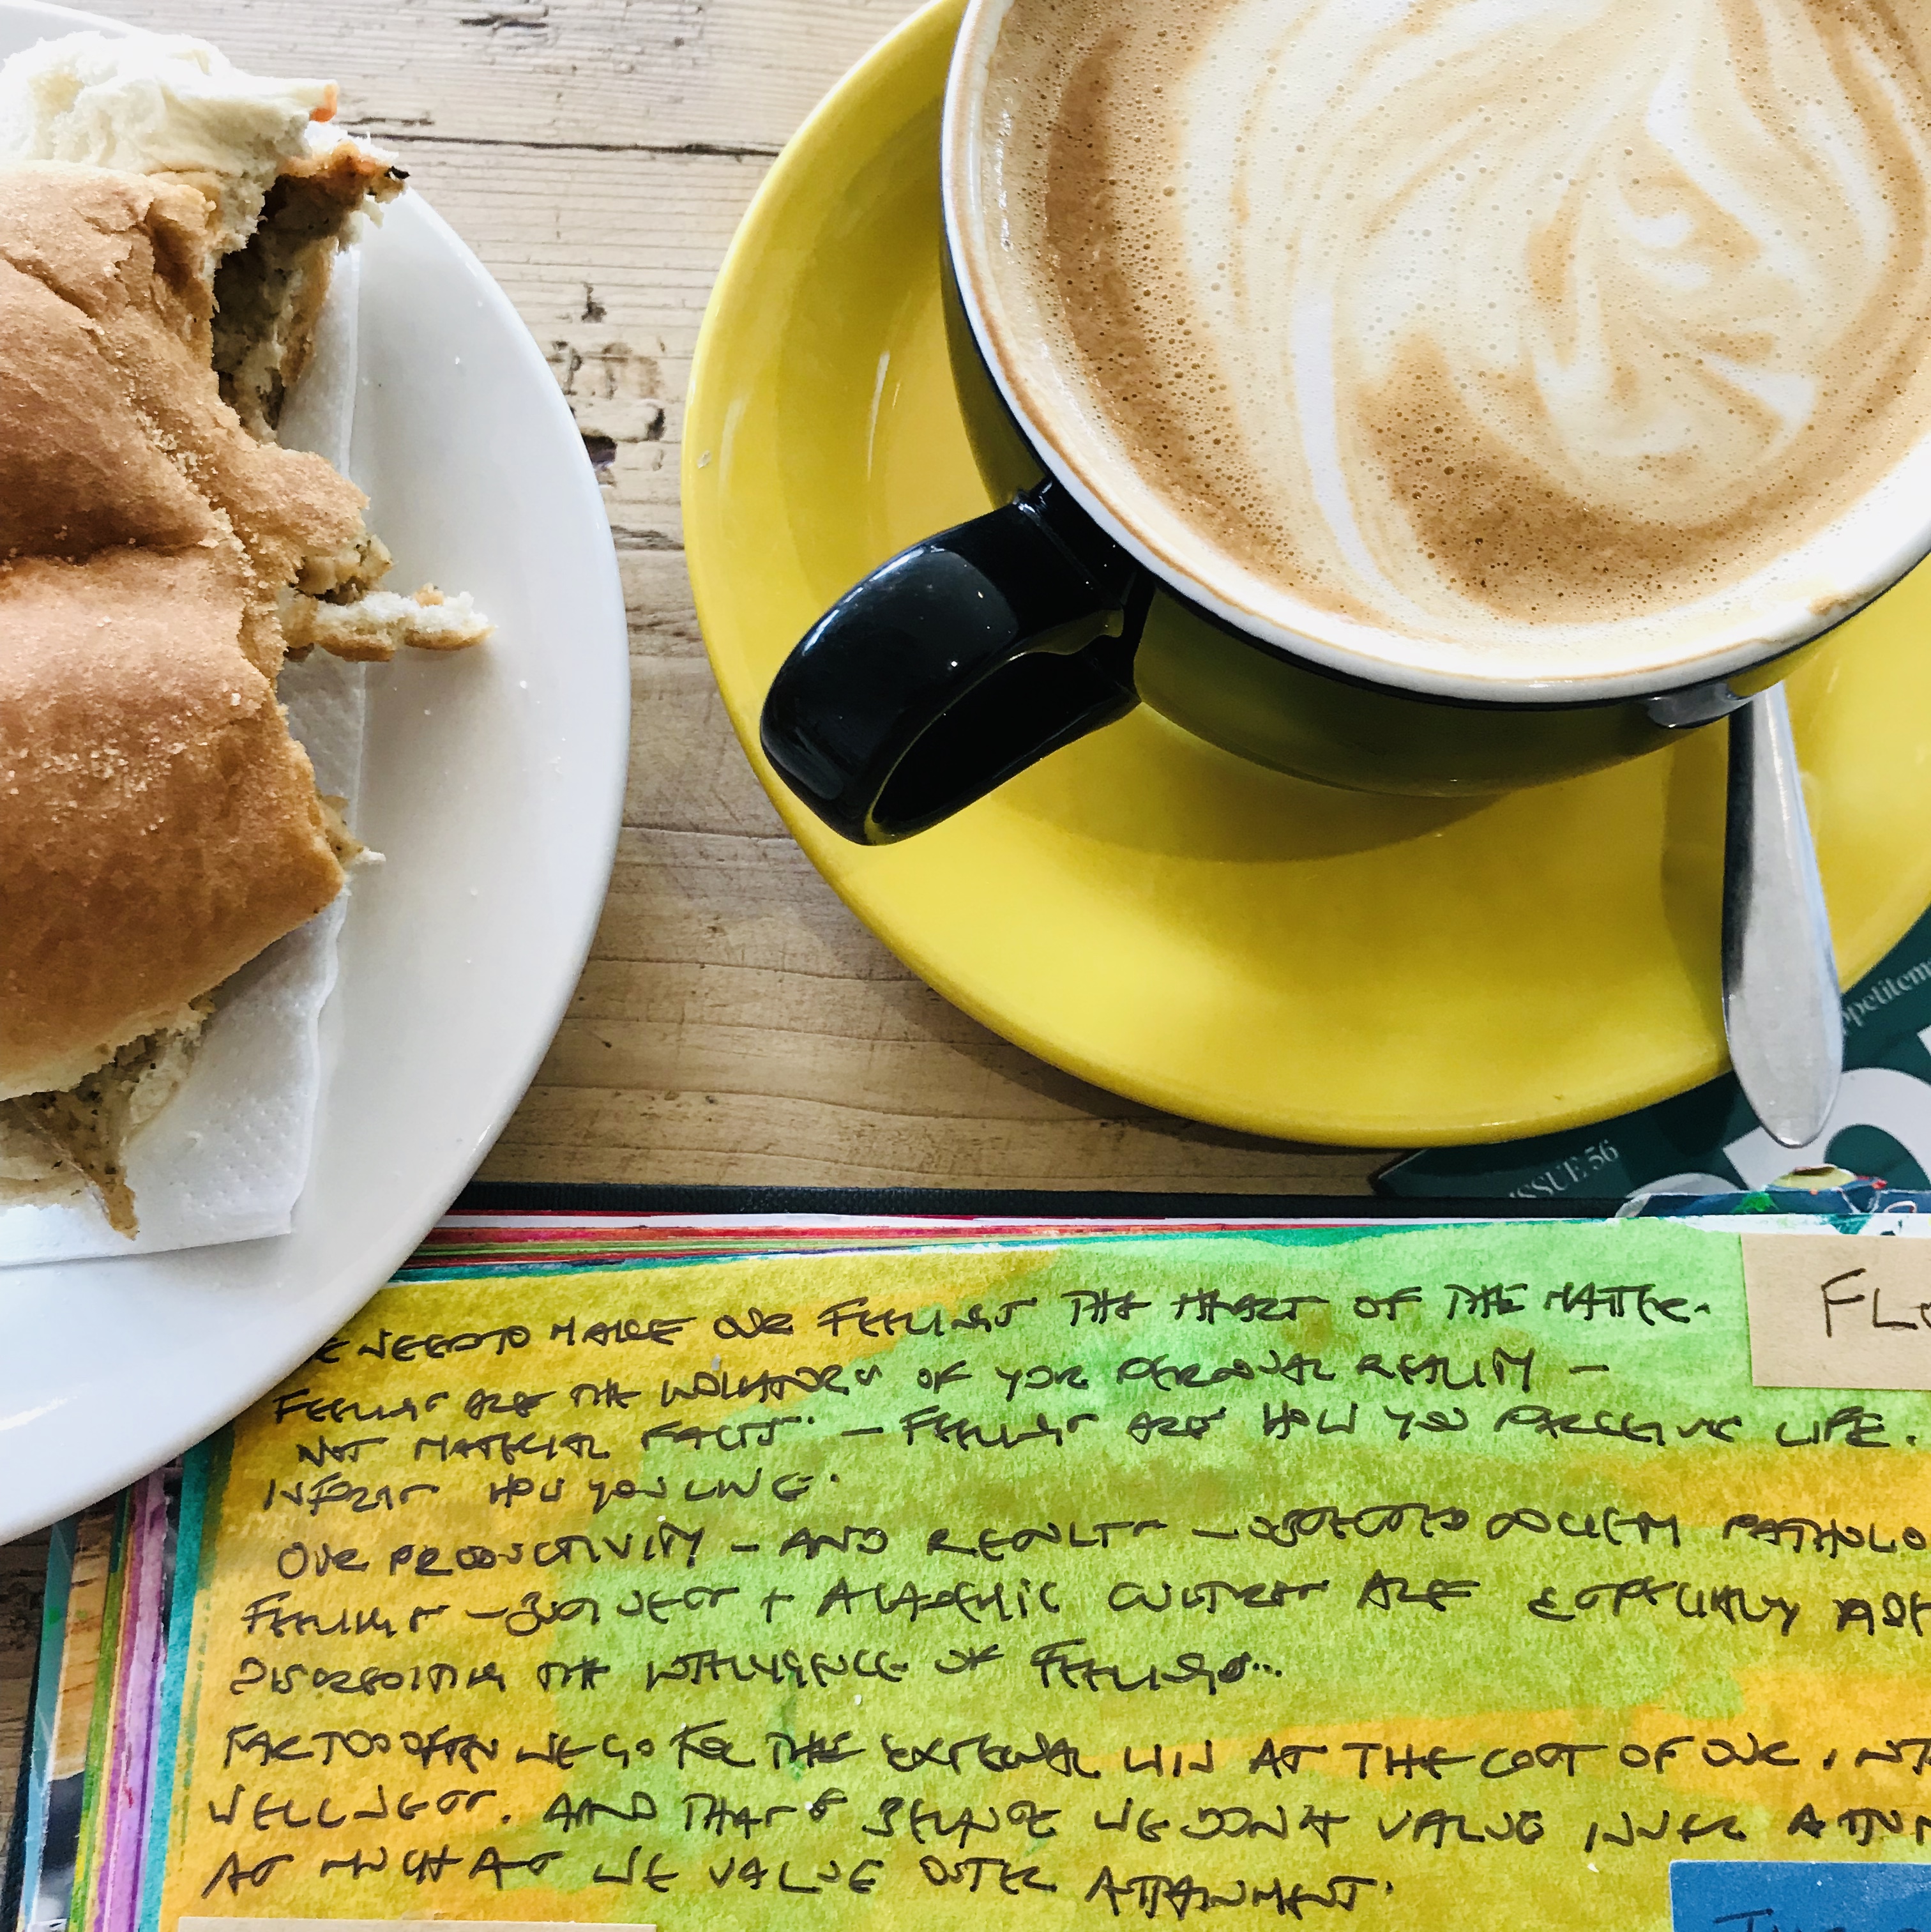 ppetitem
ISSUE 56
FL
E NEED TO MAKE OUR FEELINGS THE HEART OF THE MATTER.
FEELINGS ARE THE OF YOUR PERSONAL REALITY —
NOT MATERIAL FACTS — FEELINGS ARE HOW YOU PERCEIVE LIFE.
INFORM HOW YOU LIVE.
OUR PRODUCTIVITY — AND RESULTS — SOCIETY PATHOLO
FEELINGS — BUSINESS + ACADEMIC CULTURES ARE ESPECIALLY ADE
DISCREDITING THE INTELLIGENCE OF FEELINGS...
FAR TOO OFTEN WE GO FOR THE EXTERNAL WIN AT THE COST OF OUR INT
WELLNESS. AND THAT'S BECAUSE WE DON'T VALUE INNER ATTUN
AS MUCH AS WE VALUE OUTER ATTAINMENT.